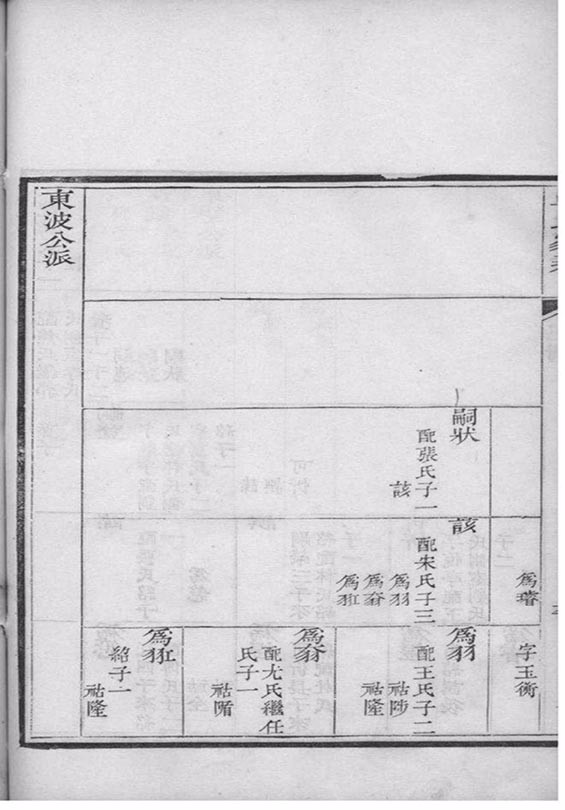 爲璿
字玉衡
嗣狀
配張氏子一
該
該
配宋氏子三
爲羽
爲
爲
爲羽
配王氏子二
祜陟
祜隆
爲
配尤氏繼任
氏子一
祜陏
爲
紹子一
祜隆
東波公派